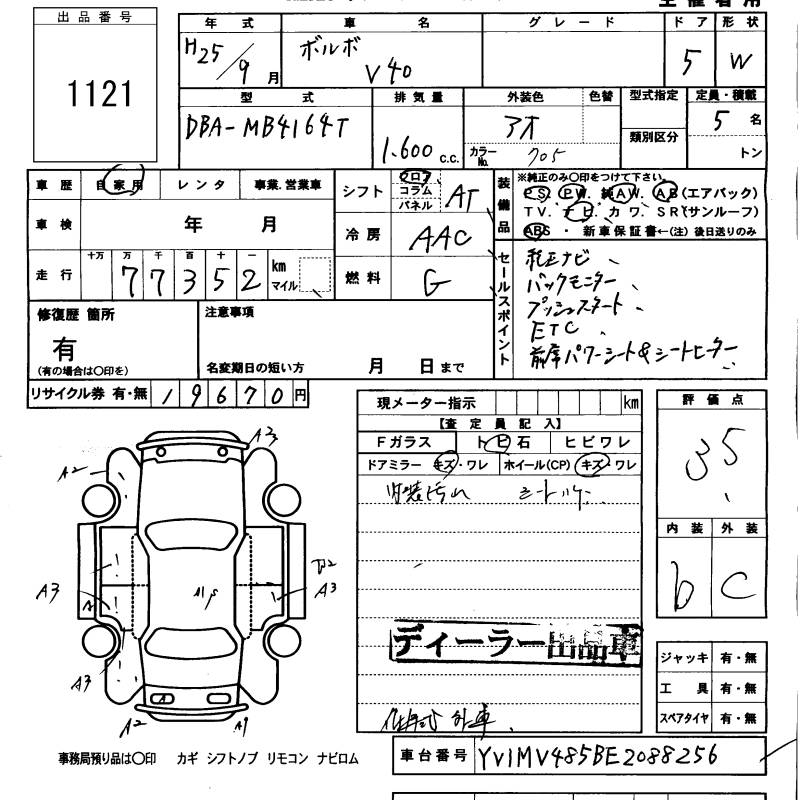 出品番号
1121
年式 車名 グレード ドア 形状
H25/9月 ボルボ V40 5 W
型式 排気量 外装色 色替 型式指定 定員・積載
DBA-MB4164T 1.600 c.c. アオ カラーNo. 705 類別区分 5名
トン
車歴 自家用 レンタ 事業.営業車
車検 年 月
走行 十万 万 千 百 十 km マイル
77352
シフト フロア コラム パネル AT
冷房 AAC
燃料 G
装備品 ※純正のみ〇印をつけて下さい。
PS. PW. 純AW. AB(エアバック)
TV. ナビ. カワ. SR(サンルーフ)
ABS ・ 新車保証書←(注) 後日送りのみ
セールスポイント
純正ナビ
バックモニター
プッシュスタート
ETC
前席パワーシート&シートヒーター
修復歴 箇所
有
(有の場合は〇印を)
注意事項
名変期日の短い方 月 日まで
リサイクル券 有・無 19670円
現メーター指示 km
【査定員記入】
Fガラス トビ石 ヒビワレ
ドアミラー キズ・ワレ ホイール(CP) キズ・ワレ
内装汚れ
ディーラー出品車
評価点
35
内装 外装
b C
ジャッキ 有・無
工具 有・無
スペアタイヤ 有・無
A3
A2
A3
A
A3
A3
A2
A
A1
事務局預り品は〇印 カギ シフトノブ リモコン ナビロム
車台番号 YV1MV485BE2088256